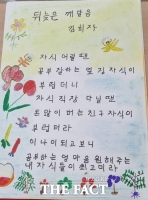 뒤늦은 깨달음
김희자
자식 어릴때
공부 잘하는 옆집 자식이
부럽더니
자식 직장 다닐땐
돈많이 버는 친구 자식이
부럽더라
이 나이 되고보니
공부하는 엄마 응원해주는
내 자식들이 최고더라
THE FACT